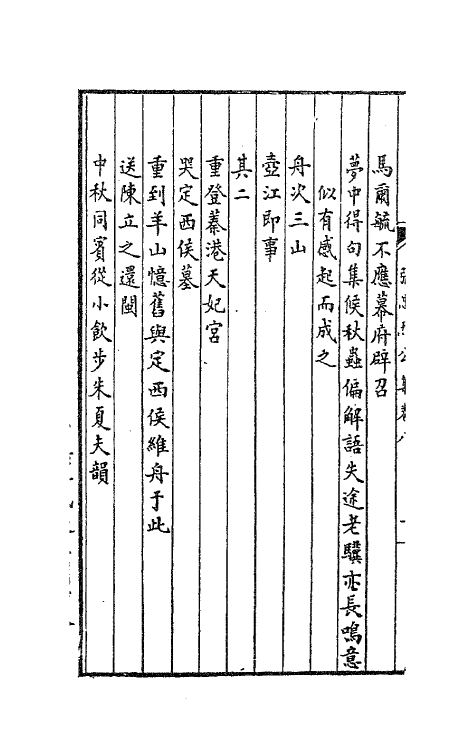 馬爾毓不應幕府辟召
夢中得句集候秋蟲偏解語失途老驥亦長鳴意
似有感起而成之
舟次三山
壺江即事
其二
重登蓁港天妃宮
哭定西侯墓
重到羊山憶舊與定西侯維舟于此
送陳立之還閩
中秋同賓從小飲步朱夏夫韻